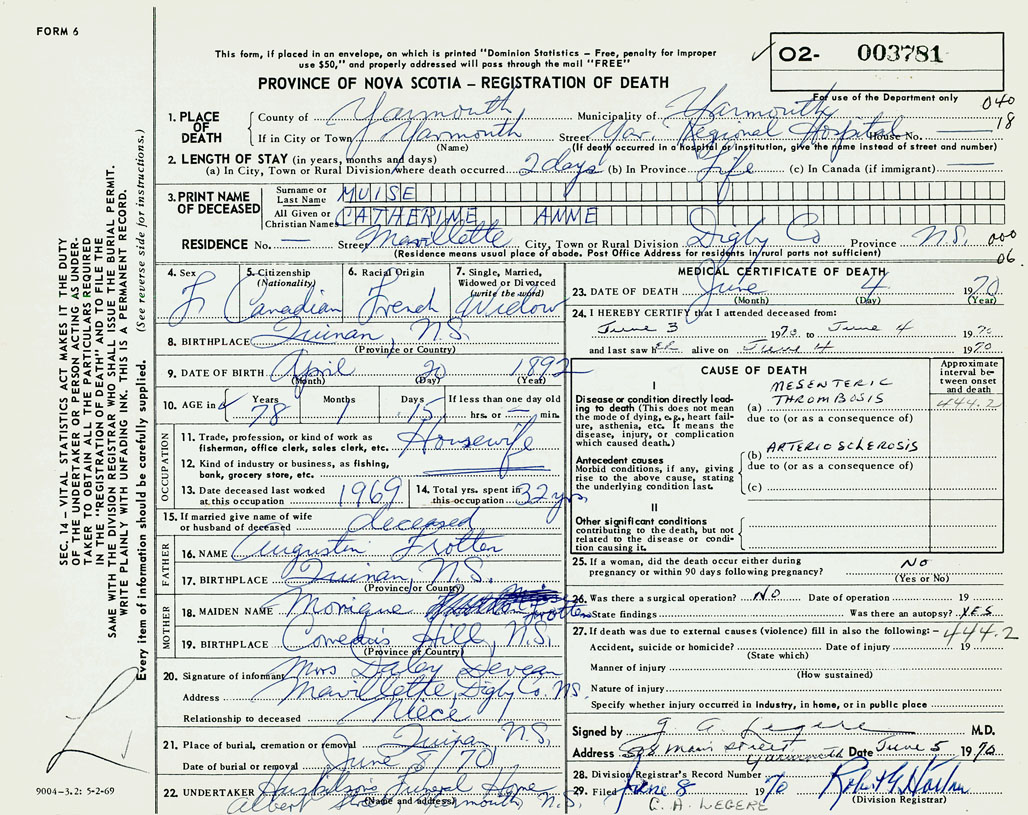 FORM 6
This form, if placed in an envelope, on which is printed "Dominion Statistics – Free, penalty for improper
use $50," and properly addressed will pass through the mail "FREE"
✓ 02- 003781
PROVINCE OF NOVA SCOTIA – REGISTRATION OF DEATH
For use of the Department only 040
18
1. PLACE OF DEATH
County of Yarmouth Municipality of Yarmouth
If in City or Town Yarmouth Street Yar. Regional Hospital House No. —
(Name) (If death occurred in a hospital or institution, give the name instead of street and number)
2. LENGTH OF STAY (in years, months and days)
(a) In City, Town or Rural Division where death occurred 2 days (b) In Province Life (c) In Canada (if immigrant) —
3. PRINT NAME OF DECEASED
Surname or Last Name MUISE
All Given or Christian Names CATHERINE ANNE
RESIDENCE No. — Street Mavillette City, Town or Rural Division Digby Co Province N.S. 000
(Residence means usual place of abode. Post Office Address for residents in rural parts not sufficient) 06.
4. Sex F
5. Citizenship (Nationality) Canadian
6. Racial Origin French
7. Single, Married, Widowed or Divorced (write the word) Widow
8. BIRTHPLACE Quinan, N.S.
(Province or Country)
9. DATE OF BIRTH April 20 1892
(Month) (Day) (Year)
10. AGE in Years 78 Months 1 Days 15 If less than one day old hrs. or — min.
OCCUPATION
11. Trade, profession, or kind of work as fisherman, office clerk, sales clerk, etc. Housewife
12. Kind of industry or business, as fishing, bank, grocery store, etc.
13. Date deceased last worked at this occupation 1969
14. Total yrs. spent in this occupation 32 yrs
15. If married give name of wife or husband of deceased deceased
FATHER
16. NAME Augustin Frotten
17. BIRTHPLACE Quinan, N.S.
(Province or Country)
MOTHER
18. MAIDEN NAME Monique Frotten
19. BIRTHPLACE Comeau's Hill, N.S.
(Province of Country)
20. Signature of informant Mrs Daley Deveau
Address Mavillette, Digby Co. N.S.
Relationship to deceased Niece
21. Place of burial, cremation or removal Quinan N.S.
Date of burial or removal June 8/70
22. UNDERTAKER Funeral Home
(Name and address) Albert Street, Yarmouth N.S.
MEDICAL CERTIFICATE OF DEATH
23. DATE OF DEATH June 4 1970
(Month) (Day) (Year)
24. I HEREBY CERTIFY that I attended deceased from:
June 3 1970 to June 4 1970
and last saw her alive on June 4 1970
CAUSE OF DEATH
Approximate interval between onset and death
444.2
I
Disease or condition directly leading to death (This does not mean the mode of dying, e.g., heart failure, asthenia, etc. It means the disease, injury, or complication which caused death.)
(a) MESENTERIC THROMBOSIS
due to (or as a consequence of)
Antecedent causes
Morbid conditions, if any, giving rise to the above cause, stating the underlying condition last.
(b) ARTERIOSCLEROSIS
due to (or as a consequence of)
(c)
II
Other significant conditions contributing to the death, but not related to the disease or condition causing it.
25. If a woman, did the death occur either during pregnancy or within 90 days following pregnancy? NO
(Yes or No)
26. Was there a surgical operation? NO Date of operation 19
State findings Was there an autopsy? YES
27. If death was due to external causes (violence) fill in also the following: – 444.2
Accident, suicide or homicide? Date of injury 19
(State which)
Manner of injury
(How sustained)
Nature of injury
Specify whether injury occurred in industry, in home, or in public place
Signed by G A Legere M.D.
Address Main Street Yarmouth Date June 5 1970
28. Division Registrar's Record Number
29. Filed June 8 1970
(Division Registrar)
C. A. LEGERE
SEC. 14 – VITAL STATISTICS ACT MAKES IT THE DUTY
OF THE UNDERTAKER OR PERSON ACTING AS UNDER-
TAKER TO OBTAIN ALL THE PARTICULARS REQUIRED
IN THE "REGISTRATION OF DEATH" AND TO FILE THE
SAME WITH THE DIVISION REGISTRAR WHO SHALL ISSUE THE BURIAL PERMIT.
WRITE PLAINLY WITH UNFADING INK. THIS IS A PERMANENT RECORD.
Every item of information should be carefully supplied. (See reverse side for instructions.)
9004–3.2: 5-2-69